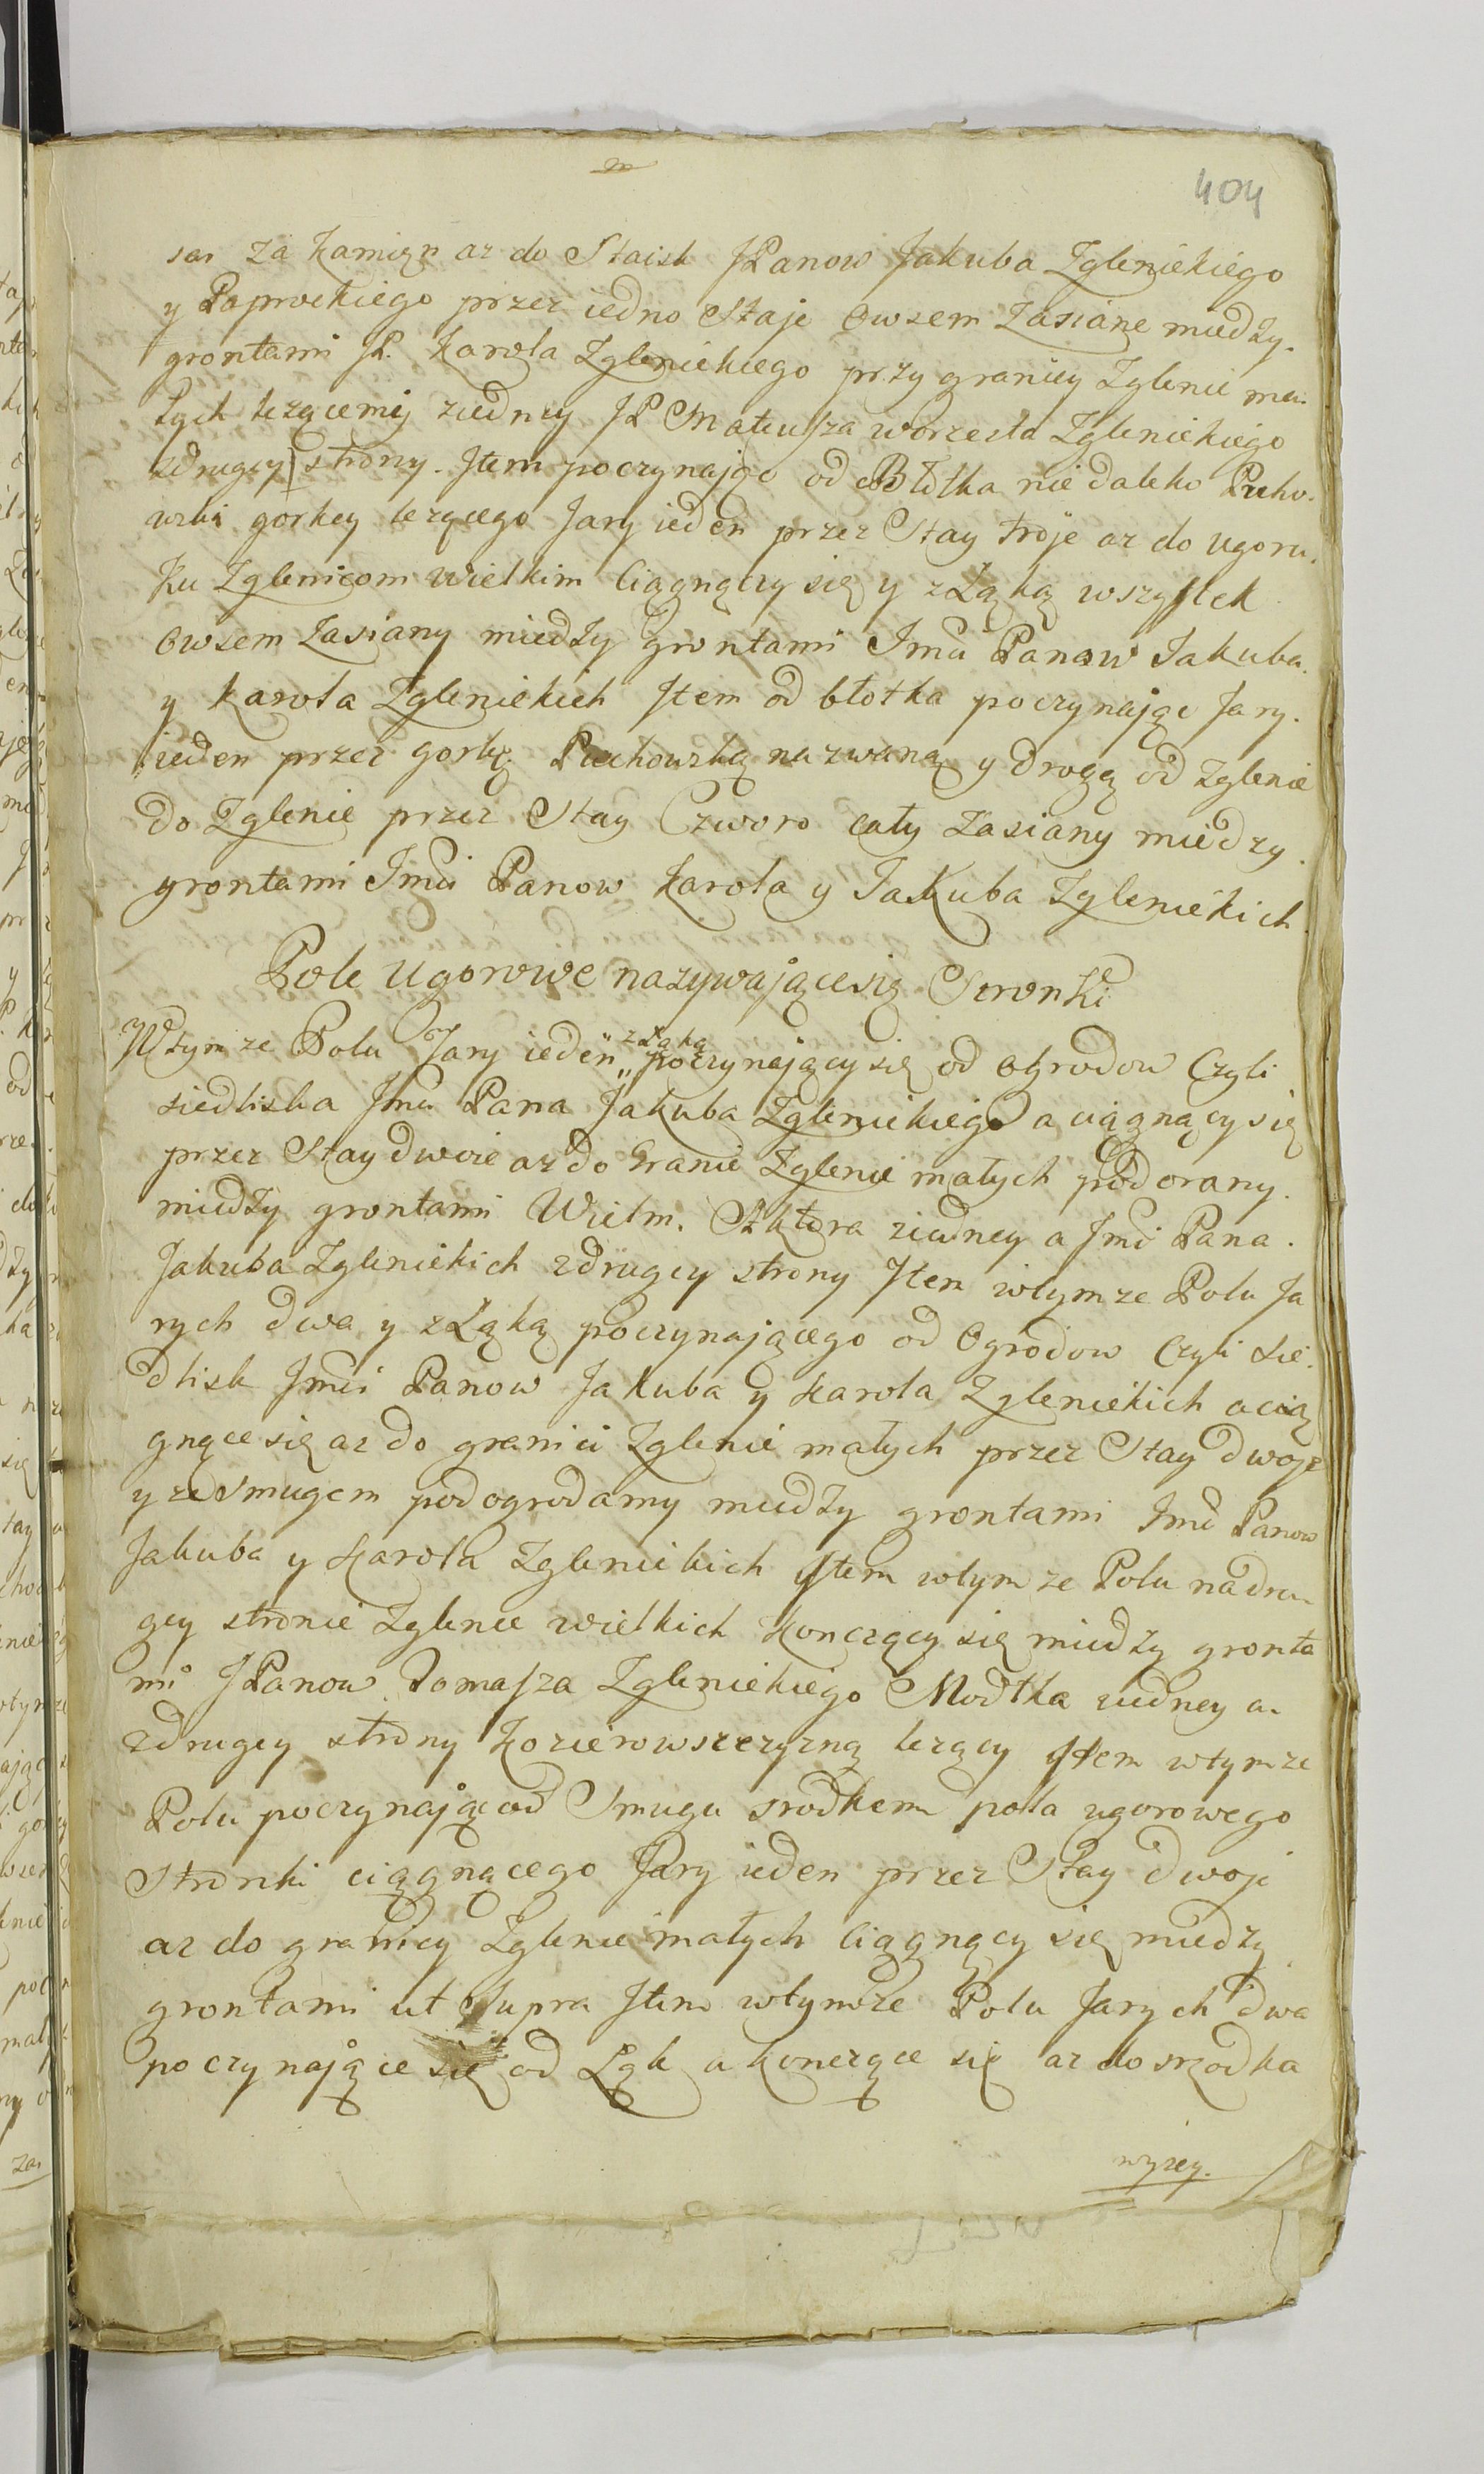 404
za Kamien az do Staisk JPanow Jakuba Zglenickiego
y Paprockiego przez iedno Staje Owsem Zasiane miedzy
grontami JP. Karola Zglenickiego przy graniey Zglenic ma-
łych lezącemij ziedney JP Mateusza Zglenickiego
zdrugey strony. Jtem poczynając od Błotka nie daleko Pucho-
wski gorkey lezącego Jary ieden przez Stay Troje az do ugoru
Ku Zglenicom Wielkim Ciągnączy się y z Łąką wszystek
Owsem Zasiany miedzy grontami Jmci Panow Jakuba
y Karola Zglenickich Jtem od błotka poczynając Jary
ieden przez gorkę Puchowską nazwaną y drogą od Zglenic
do Zglenic przez Stay Czworo cały Zasiany miedzy
grontami Jmci Panow Karola y Jakuba Zglenickich
Pole Ugorowe nazywające się Stronki
W tymze Polu Jary ieden z Łąką poczynający się od Ogrodow Czyli
siedliska Jmci Pana Jakuba Zglenickiego a ciągnący się
przez Stay dwoie az do Granic Zglenic małych podorany
miedzy grontami Wielm. ziedney a Jmci Pana
Jakuba Zglenickich zdrugey strony Jtem wtymze Polu Ja
rych dwa y z Łąką poczynającego od Ogrodow Czyli Sie-
dlisk Jmci Panow Jakuba y Karola Zglenickich a cią
gnące się az do granici Zglenic małych przez Stay dwoje
y ze Smugem podogrodamy miedzy grontami Jmci Panow
Jakuba y Karola Zglenickich Jtem wtymze Polu nadru-
gey stronie Zglenic wielkich Konczący się miedzy gronta
mi JPanow Tomasza Zglenickiego Modtka ziedney a
zdrugey strony Kozierowszczyzną lezący Jtem wtymze
Polu poczynając od Smugu srodkem pola ugorowego
Stronki ciągnącego Jary ieden przez Stay dwoje
az do granicy Zglenic małych Ciągnący się miedzy
grontami ut Supra Jtem wtymze Polu Jarych dwa
poczynające się od Łąk a konczące się az do srzodka
wyzey.